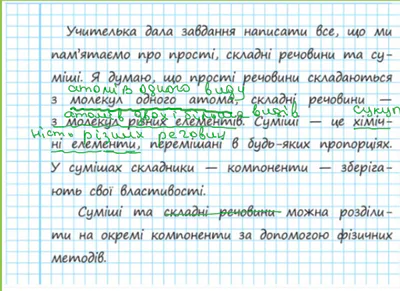 Учителька дала завдання написати все, що ми
пам'ятаємо про прості, складні речовини та су-
міші. Я думаю, що прості речовини складаються
атомів одного виду
з молекул одного атома, складні речовини —
атомів двох і більше видів сукуп
з молекул різних елементів. Суміші — це хіміч-
ність різних речовин
ні елементи, перемішані в будь-яких пропорціях.
У сумішах складники — компоненти — зберіга-
ють свої властивості.
Суміші та складні речовини можна розділи-
ти на окремі компоненти за допомогою фізичних
методів.